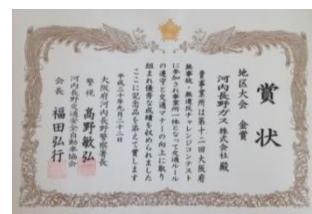 賞状
地区大会 金賞
河内長野ガス株式会社殿
貴事業所は第十二回大阪府
無事故・無違反チャレンジコンテスト
に参加され事業所一体となって交通ルール
の遵守と交通マナーの向上に取り
組まれ優秀な成績を収められました
ここに記念品を添えて賞します
平成三十年九月二十二日
大阪府河内長野警察署長
警視 高野敏弘
河内長野交通安全自動車協会
会長 福田弘行